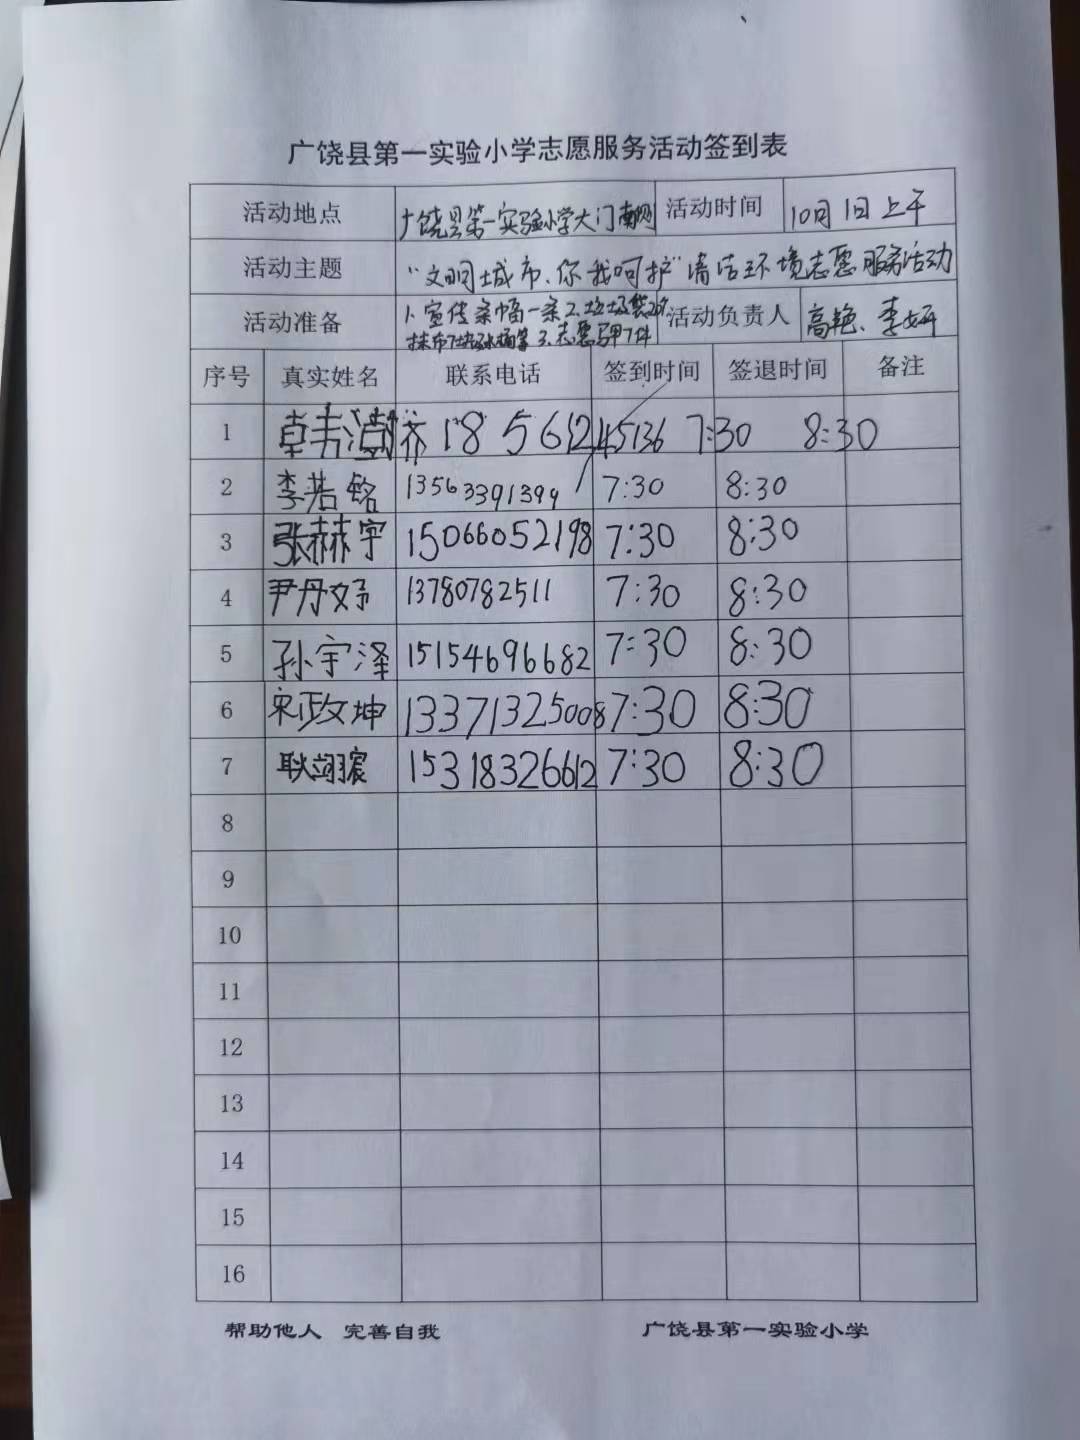 广饶县第一实验小学志愿服务活动签到表
活动地点 广饶县第一实验小学大门南侧 活动时间 10月1日上午
活动主题 “文明城市、你我呵护”清洁环境志愿服务活动
活动准备 1、宣传条幅一条 2、垃圾袋 抹布7块 水桶 3、志愿马甲7件 活动负责人 高艳、李妍
序号 真实姓名 联系电话 签到时间 签退时间 备注
1 18561245136 7:30 8:30
2 李若铭 13563391399 7:30 8:30
3 张赫宇 15066052198 7:30 8:30
4 尹丹妤 13780782511 7:30 8:30
5 孙宇泽 15154696682 7:30 8:30
6 宋政坤 13371325008 7:30 8:30
7 耿翊宸 15318326612 7:30 8:30
8
9
10
11
12
13
14
15
16
帮助他人 完善自我 广饶县第一实验小学